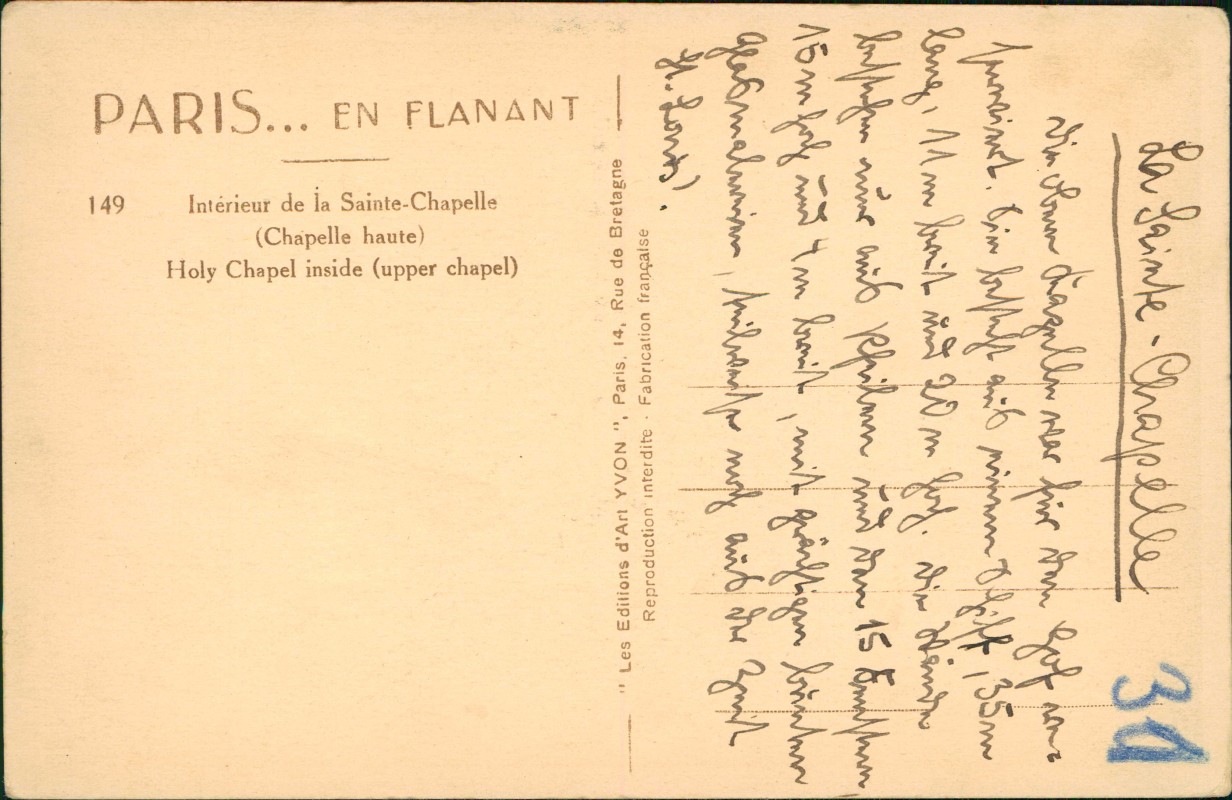 PARIS... EN FLANANT
149 Intérieur de la Sainte-Chapelle
(Chapelle haute)
Holy Chapel inside (upper chapel)
" Les Editions d'Art YVON ", Paris, 14, Rue de Bretagne
Reproduction interdite - Fabrication française
La Sainte-Chapelle
Die obere Kapelle war für den Hof re-
serviert. Sie besteht aus einem Schiff, 35 m
lang, 11 m breit und 20 m hoch. Die Wände
bestehen nur aus Pfeilern und den 15 Fenstern
15 m hoch und 4 m breit, mit prächtigen bunten
Glasmalereien, teilweise noch aus der Zeit